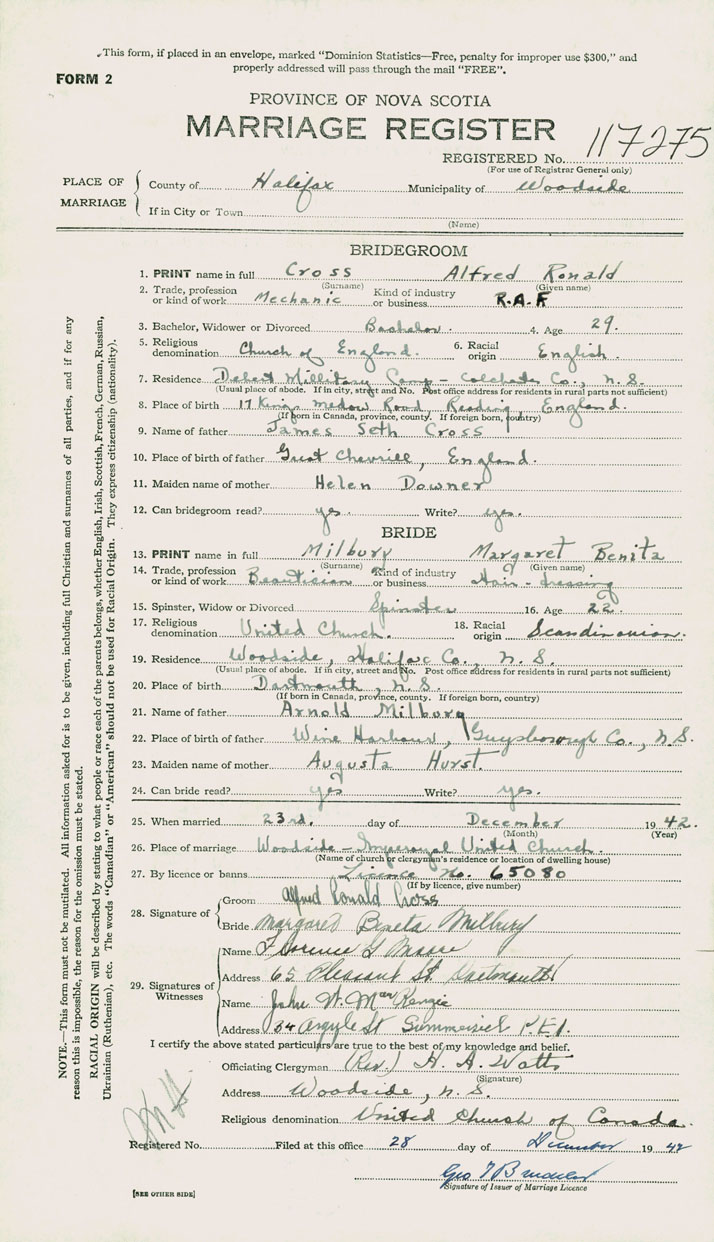 This form, if placed in an envelope, marked "Dominion Statistics—Free, penalty for improper use $300," and
properly addressed will pass through the mail "FREE".
FORM 2
PROVINCE OF NOVA SCOTIA
MARRIAGE REGISTER
REGISTERED No. 117275
(For use of Registrar General only)
PLACE OF MARRIAGE
County of Halifax Municipality of Woodside
If in City or Town
(Name)
BRIDEGROOM
1. PRINT name in full Cross Alfred Ronald
(Surname) (Given name)
2. Trade, profession or kind of work Mechanic Kind of industry or business R.A.F
3. Bachelor, Widower or Divorced Bachelor. 4. Age 29.
5. Religious denomination Church of England. 6. Racial origin English.
7. Residence Debert Millitary Camp - Colchester Co., N.S.
(Usual place of abode. If in city, street and No. Post office address for residents in rural parts not sufficient)
8. Place of birth 17 Kings Medow Road Reading, England.
(If born in Canada, province, county. If foreign born, country)
9. Name of father James Seth Cross
10. Place of birth of father Great Chevrill, England.
11. Maiden name of mother Helen Downer
12. Can bridegroom read? yes Write? yes.
BRIDE
13. PRINT name in full Milbury Margaret Benita
(Surname) (Given name)
14. Trade, profession or kind of work Beautician Kind of industry or business Hair-dressing
15. Spinster, Widow or Divorced Spinster 16. Age 22.
17. Religious denomination United Church. 18. Racial origin Scandinavian.
19. Residence Woodside, Halifax Co., N.S.
(Usual place of abode. If in city, street and No. Post office address for residents in rural parts not sufficient)
20. Place of birth Dartmouth, N.S.
(If born in Canada, province, county. If foreign born, country)
21. Name of father Arnold Milbury
22. Place of birth of father Wine Harbour, Guysborough Co., N.S.
23. Maiden name of mother Augusta Hurst.
24. Can bride read? yes Write? yes.
25. When married 23rd. day of December 1942.
(Month) (Year)
26. Place of marriage Woodside - United Church.
(Name of church or clergymen's residence or location of dwelling house)
27. By licence or banns Licence No. 65080
(If by licence, give number)
28. Signature of
Groom Alfred Ronald Cross
Bride Margaret Benita Milbury
29. Signatures of Witnesses
Name Florence G Moore
Address 65 Pleasant St. Dartmouth
Name John W. MacKenzie
Address 34 Argyle St Summerside P.E.I.
I certify the above stated particulars are true to the best of my knowledge and belief.
Officiating Clergyman (Rev.) H. A. Watts
(Signature)
Address Woodside, N.S.
Religious denomination United Church of Canada.
Registered No. Filed at this office 28 day of December 1942
Geo
Signature of Issuer of Marriage Licence
[SEE OTHER SIDE]
NOTE.—This form must not be mutilated. All information asked for is to be given, including full Christian and surnames of all parties, and if for any
reason this is impossible, the reason for the omission must be stated.
RACIAL ORIGIN will be described by stating to what people or race each of the parents belongs, whether English, Irish, Scottish, French, German, Russian,
Ukrainian (Ruthenian), etc. The words "Canadian" or "American" should not be used for Racial Origin. They express citizenship (nationality).